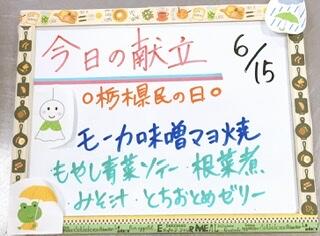 今日の献立 6/15
○栃木県民の日○
モーカ味噌マヨ焼
もやし青菜ソテー・根菜煮
・みそ汁・とちおとめゼリー